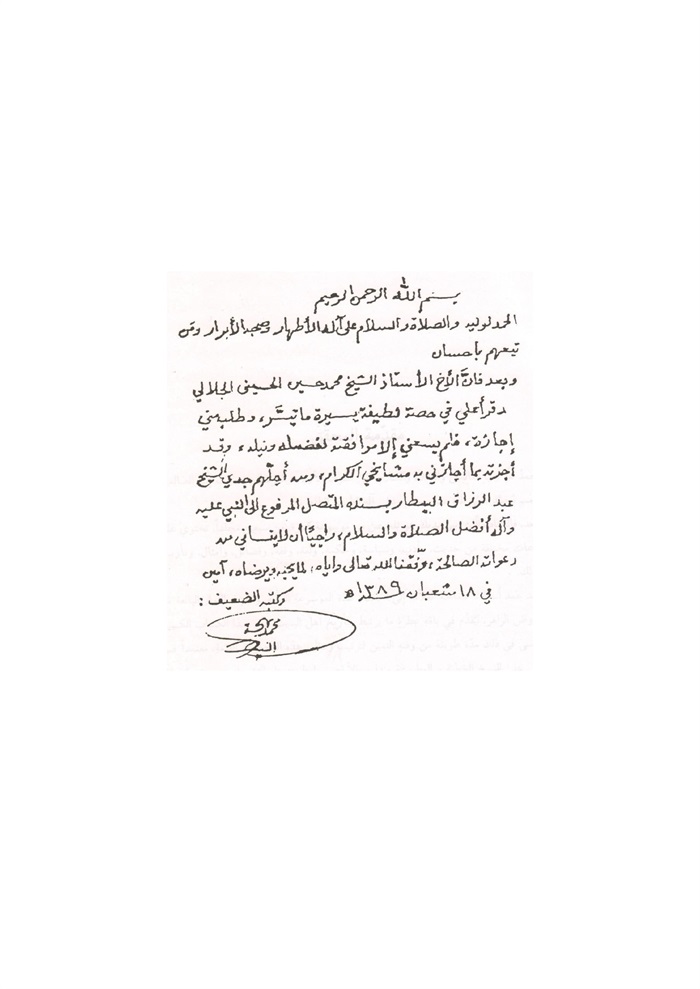 بسم الله الرحمن الرحيم
الحمد لوليه والصلاة والسلام على آله الأطهار وصحبه الأبرار ومن
تبعهم بإحسان
وبعد فإنَّ الأخ الأستاذ الشيخ محمد حسين الحسيني الجلالي
قد قرأ علي في حصة لطيفة يسيرة ما تيسَّر، وطلب مني
إجازة، فلم يسعني إلا مرافقته لفضله ونبله، وقد
أجزته بما أجازني به مشايخي الكرام، ومن أجلّهم جدي الشيخ
عبد الرزاق البيطار بسنده المتصل المرفوع الى النبي عليه
وآله أفضل الصلاة والسلام، راجيًا أن لا ينساني من
دعواته الصالحة، وفّقنا الله تعالى واياه لما يحبه ويرضاه، آمين
في ١٨ شعبان ١٣٨٩ه وكتبه الضعيف:
محمد بهجة
البيطار